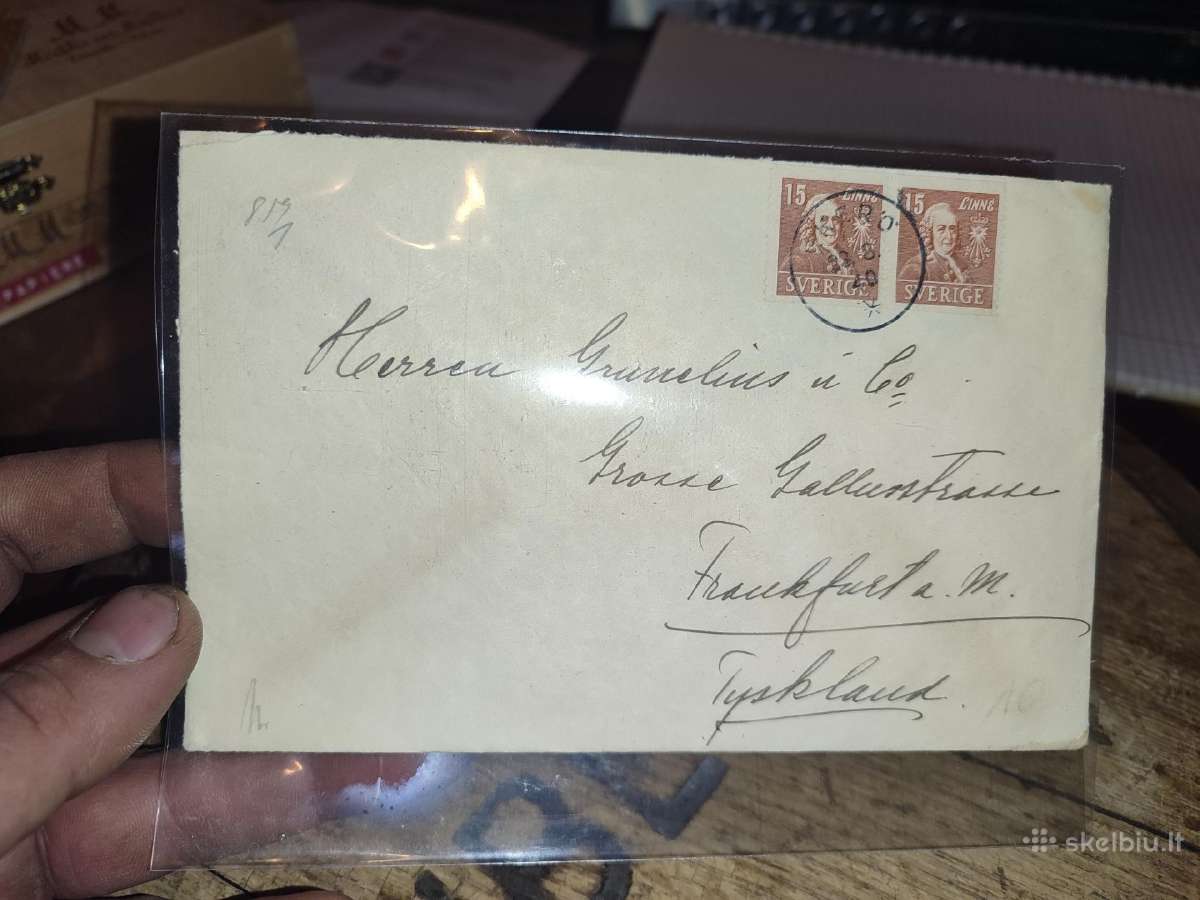 15 LINNÉ
SVERIGE
15 LINNÉ
SVERIGE
Herren Grunelius u Co
Grosse Gallusstrasse
Frankfurt a. M.
Tyskland.
PAPIERE
skelbiu.lt